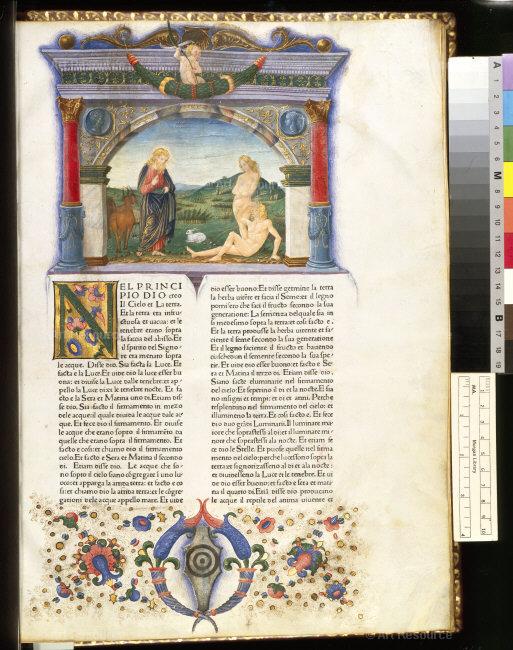 NEL PRINCI
PIO DIO creo
Il Cielo et La terra.
Et la terra era
et uacua: et le
tenebre erano sopra
la faccia del abisso. Et
il spirito del Signo
re era menato sopra
le acque. Disse Dio. Sia facta la Luce. Et
facta e la Luce. Et uide Dio la Luce esser bu
ona: et diuise la Luce dalle tenebre: et ap
pello la Luce di: et le tenebre nocte. Et fa
cto e la Sera et Matina uno di. Etium dis
se dio. Sia facto il firmamento in mezo
delle acque: il quale diuise le acque dale ac
que. Et fece dio il firmamento. Et diuise
le acque che erano sopto il firmamento da
quelle che erano sopra il firmamento. Et
facto e cosi: et chiamo dio il firmamento
cielo. Et facto e Sera et Matina il secondo
di. Etium disse dio. Le acque che so-
no sopto il cielo siano cógregate i uno luo
co: et apparga la terra: et facto e co
si: et chiamo dio la terra: et le cógre
gationi delle acque appello mare. Et uide
dio esser buono. Et disse germine la terra
la herba uirente et facia il Seme: et il legno
pomifero che faci il fructo secondo la sua
generatione: La semenza del quale sia in
se medesimo sopra la terra: et cosi facto e.
Et la terra produsse la herba uirente et fa
ciente il seme secondo la sua generatione
Et il legno faciente il fructo et hauendo
il semente secondo la sua spe-
tie. Et uide dio esser buono: et facto e Se-
ra et Matina il terzo di. Etium disse dio.
Siano facte eluminarie nel firmamento
del cielo: Et seperino il di et la nocte. Et sia
no insigni et tempi: et di et anni. Perche
resplentino nel firmamento del cielo: et
illumenino la terra. Et cosi facto e. Et fece
dio duo gradi Luminarii. Il luminare ma
iore che soprastessi al di: et il luminare mi
nore che soprastessi ala nocte. Et etiam fe
ce dio le Stelle. Et puose quelle nel firma
mento del cielo: perche lucessono sopra la
terra: et signorizassono al di et ala nocte:
et diuidessono la Luce et le tenebre. Et ui
de dio esser buono: et facto e sera et mati
na il quarto di. Etiá disse dio producino
le acque il reptile del anima uiuente et
A
1
2
3
4
5
6
M
8
9
10
11
12
13
14
15
B
17
18
19
© Art Resource